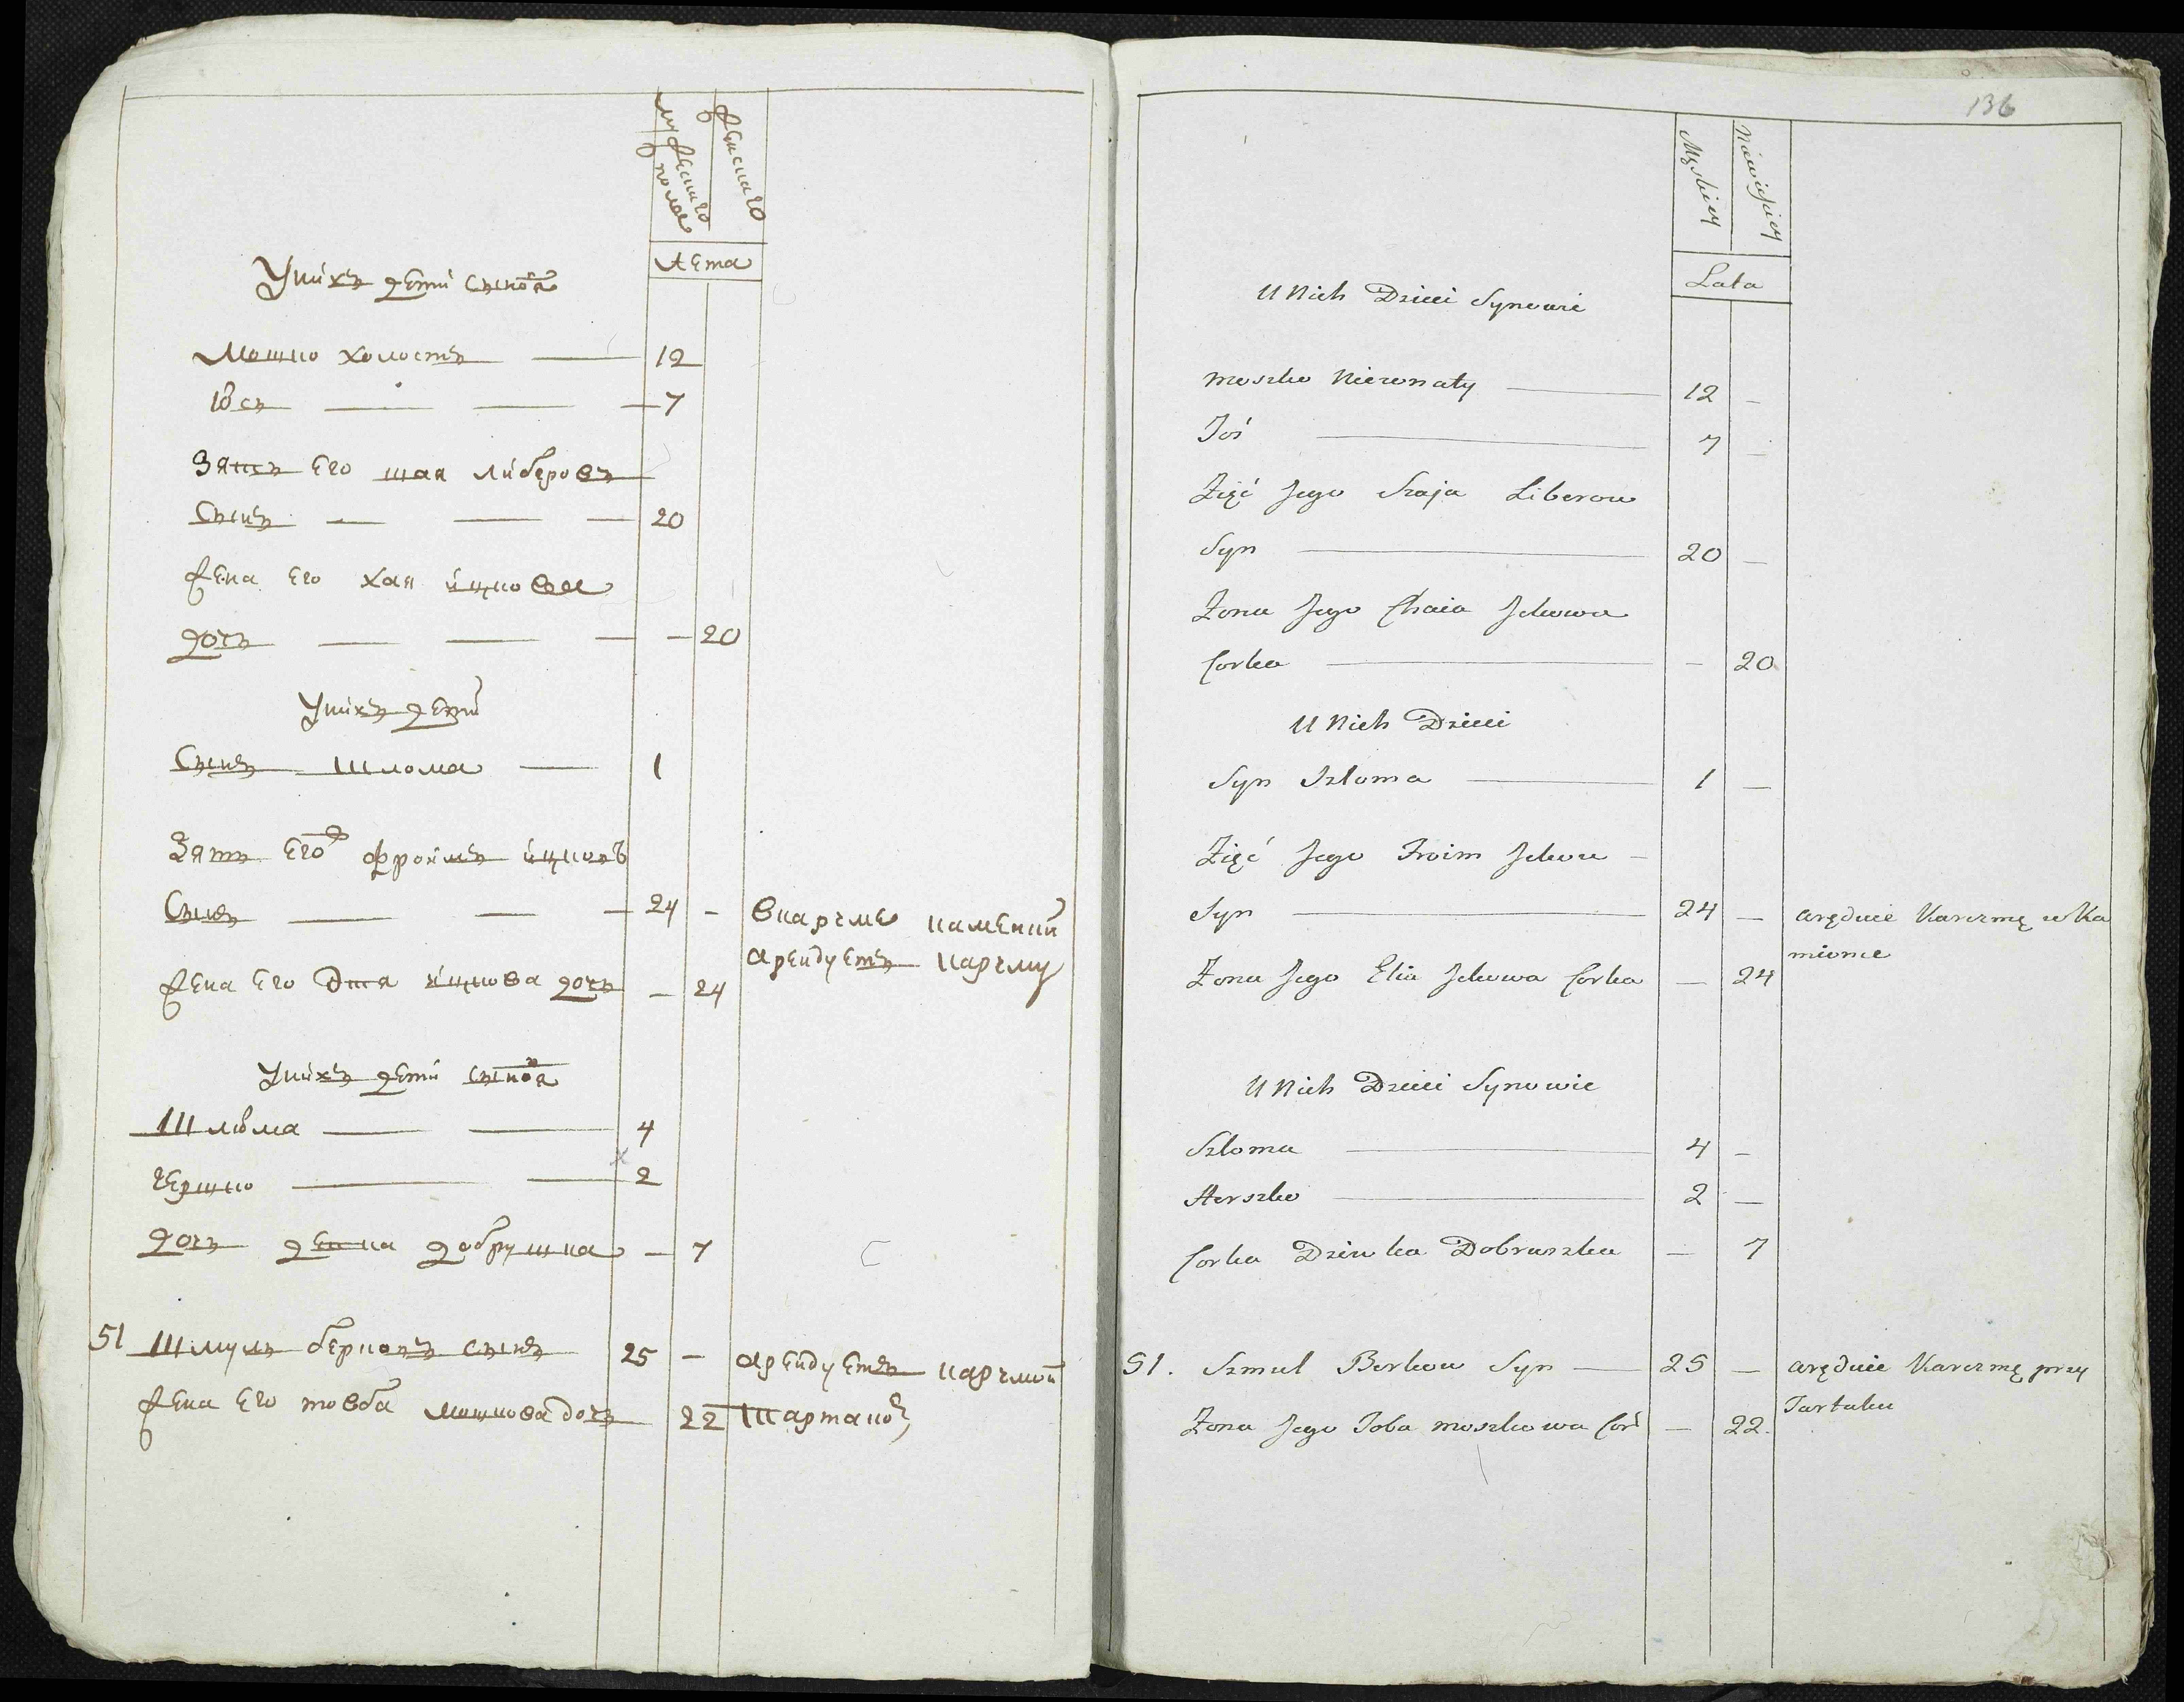 мужеска пола
женска
Лета
Уних дети сыновя
Мошко холостъ 12
Iосъ 7
Зять его шая Либеровъ
Сынъ 20
жена его хая ицкова
дочъ — 20
Уних дети
Сынъ Шлома 1
Зять его фроимъ ицковъ
Сынъ 24 — вкарчме камении
арендуетъ карчму
жена его Этя ицкова дочъ — 24
Унихъ дети сыновя
Шлома 4
гершко 2
дочъ девка добрушка — 7
51 Шмуль берковъ сынъ 25 — арендуетъ карчмой
жена его товба мошкова дочъ 22
136
Męskiey
Niewiesciey
Lata
U Nich Dzieci Synowie
Moszko Nieżonaty 12 —
Joś 7 —
Zięć Jego Szaja Liberow
Syn 20 —
Żona Jego Chaia Jckowa
Corka — 20
U Nich Dzieci
Syn Szloma 1 —
Zięć Jego Froim Jckow —
Syn 24 — aręduie Karczmę w Ka
mionce
Żona Jego Etia Jckowa Corka — 24
U Nich Dzieci Synowie
Szloma 4 —
Herszko 2 —
Corka Dziewka Dobruszka — 7
51. Szmul Berkow Syn 25 — aręduie Karczmę przy
Tartaku
Żona Jego Toba Moszkowa Cor — 22.